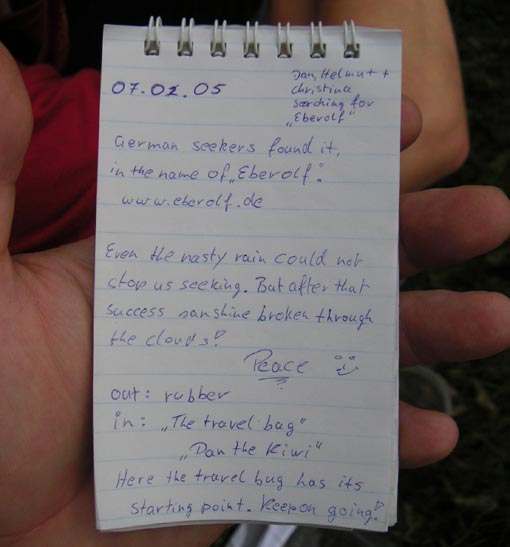 07.02.05
Jan, Helmut +
christina
serching for
„Eberolf"
German seekers found it,
in the name of „Eberolf".
www.eberolf.de
Even the nasty rain could not
stop us seeking. But after that
success sunshine broken through
the clouds!
Peace
out: rubber
in: „The travel bag"
„Dan the Kiwi"
Here the travel bug has its
starting point. Keep on going!